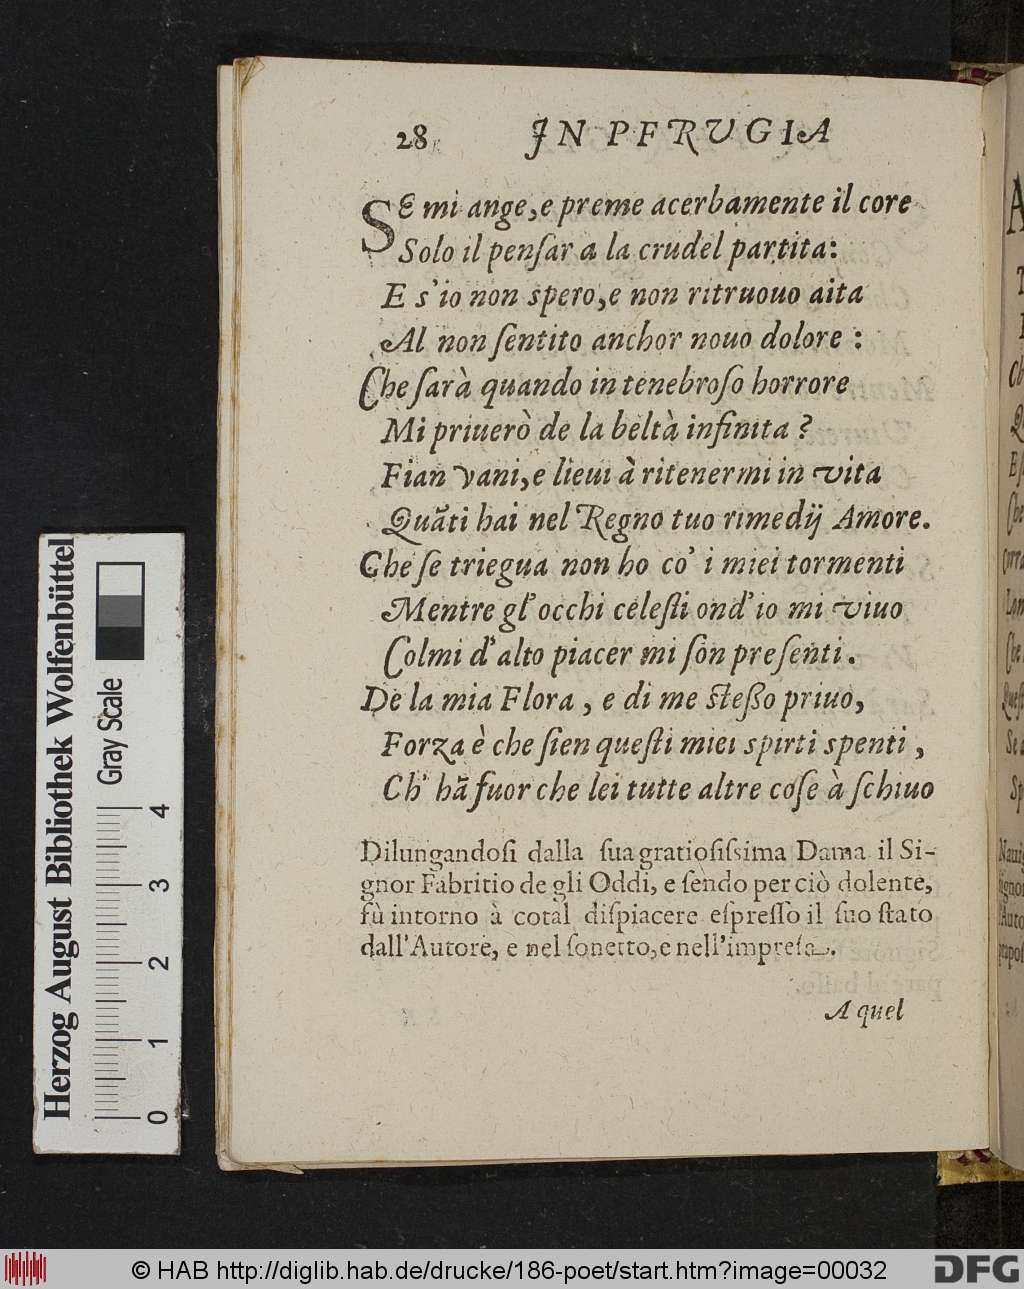 28 IN PERUGIA
SE mi ange, e preme acerbamente il core
Solo il penſar a la crudel partita:
E s'io non spero, e non ritruouo aita
Al non ſentito anchor nouo dolore :
Che ſarà quando in tenebroſo horrore
Mi priuerò de la beltà infinita ?
Fian vani, e lieui à ritenermi in vita
Quāti hai nel Regno tuo rimedij Amore.
Che ſe triegua non ho co' i miei tormenti
Mentre gl'occhi celeſti ond'io mi viuo
Colmi d'alto piacer mi ſon preſenti.
De la mia Flora, e di me ſteßo priuo,
Forza è che ſien queſti miei spirti spenti,
Ch' hā fuor che lei tutte altre coſe à ſchiuo
Dilungandoſi dalla ſua gratioſiſsima Dama il Si-
gnor Fabritio de gli Oddi, e ſendo per ciò dolente,
fù intorno à cotal diſpiacere eſpreſſo il ſuo ſtato
dall'Autore, e nel ſonetto, e nell'impreſa.
A quel
Herzog August Bibliothek Wolfenbüttel
Gray Scale
0 1 2 3 4
© HAB http://diglib.hab.de/drucke/186-poet/start.htm?image=00032
DFG